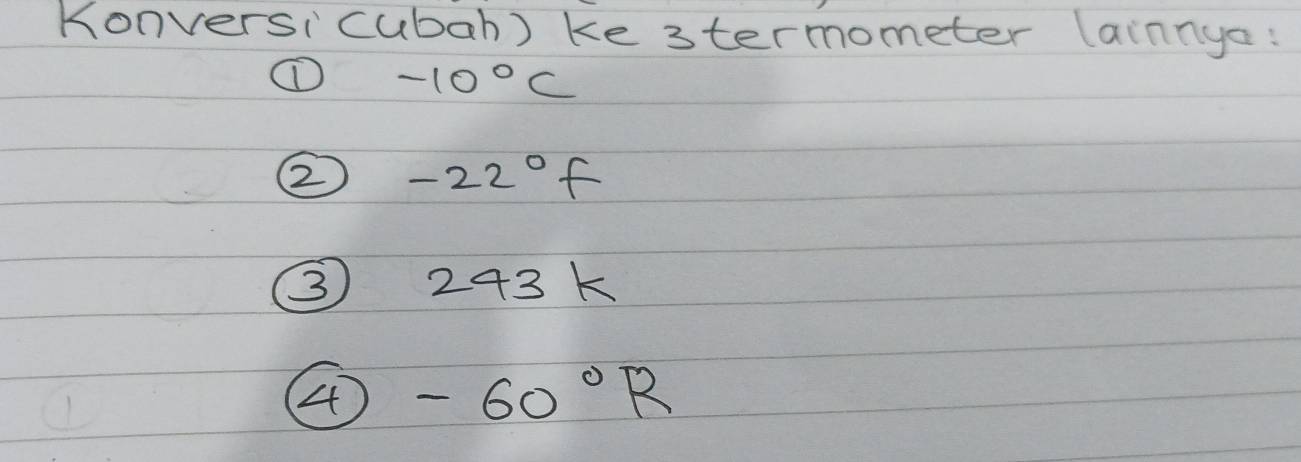 Konversi (ubah) ke 3 termometer lainnya:
① -10°C
② -22°f
③ 243 k
④ - 60°R